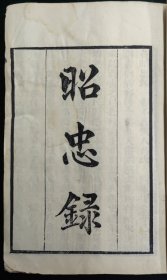 昭忠録